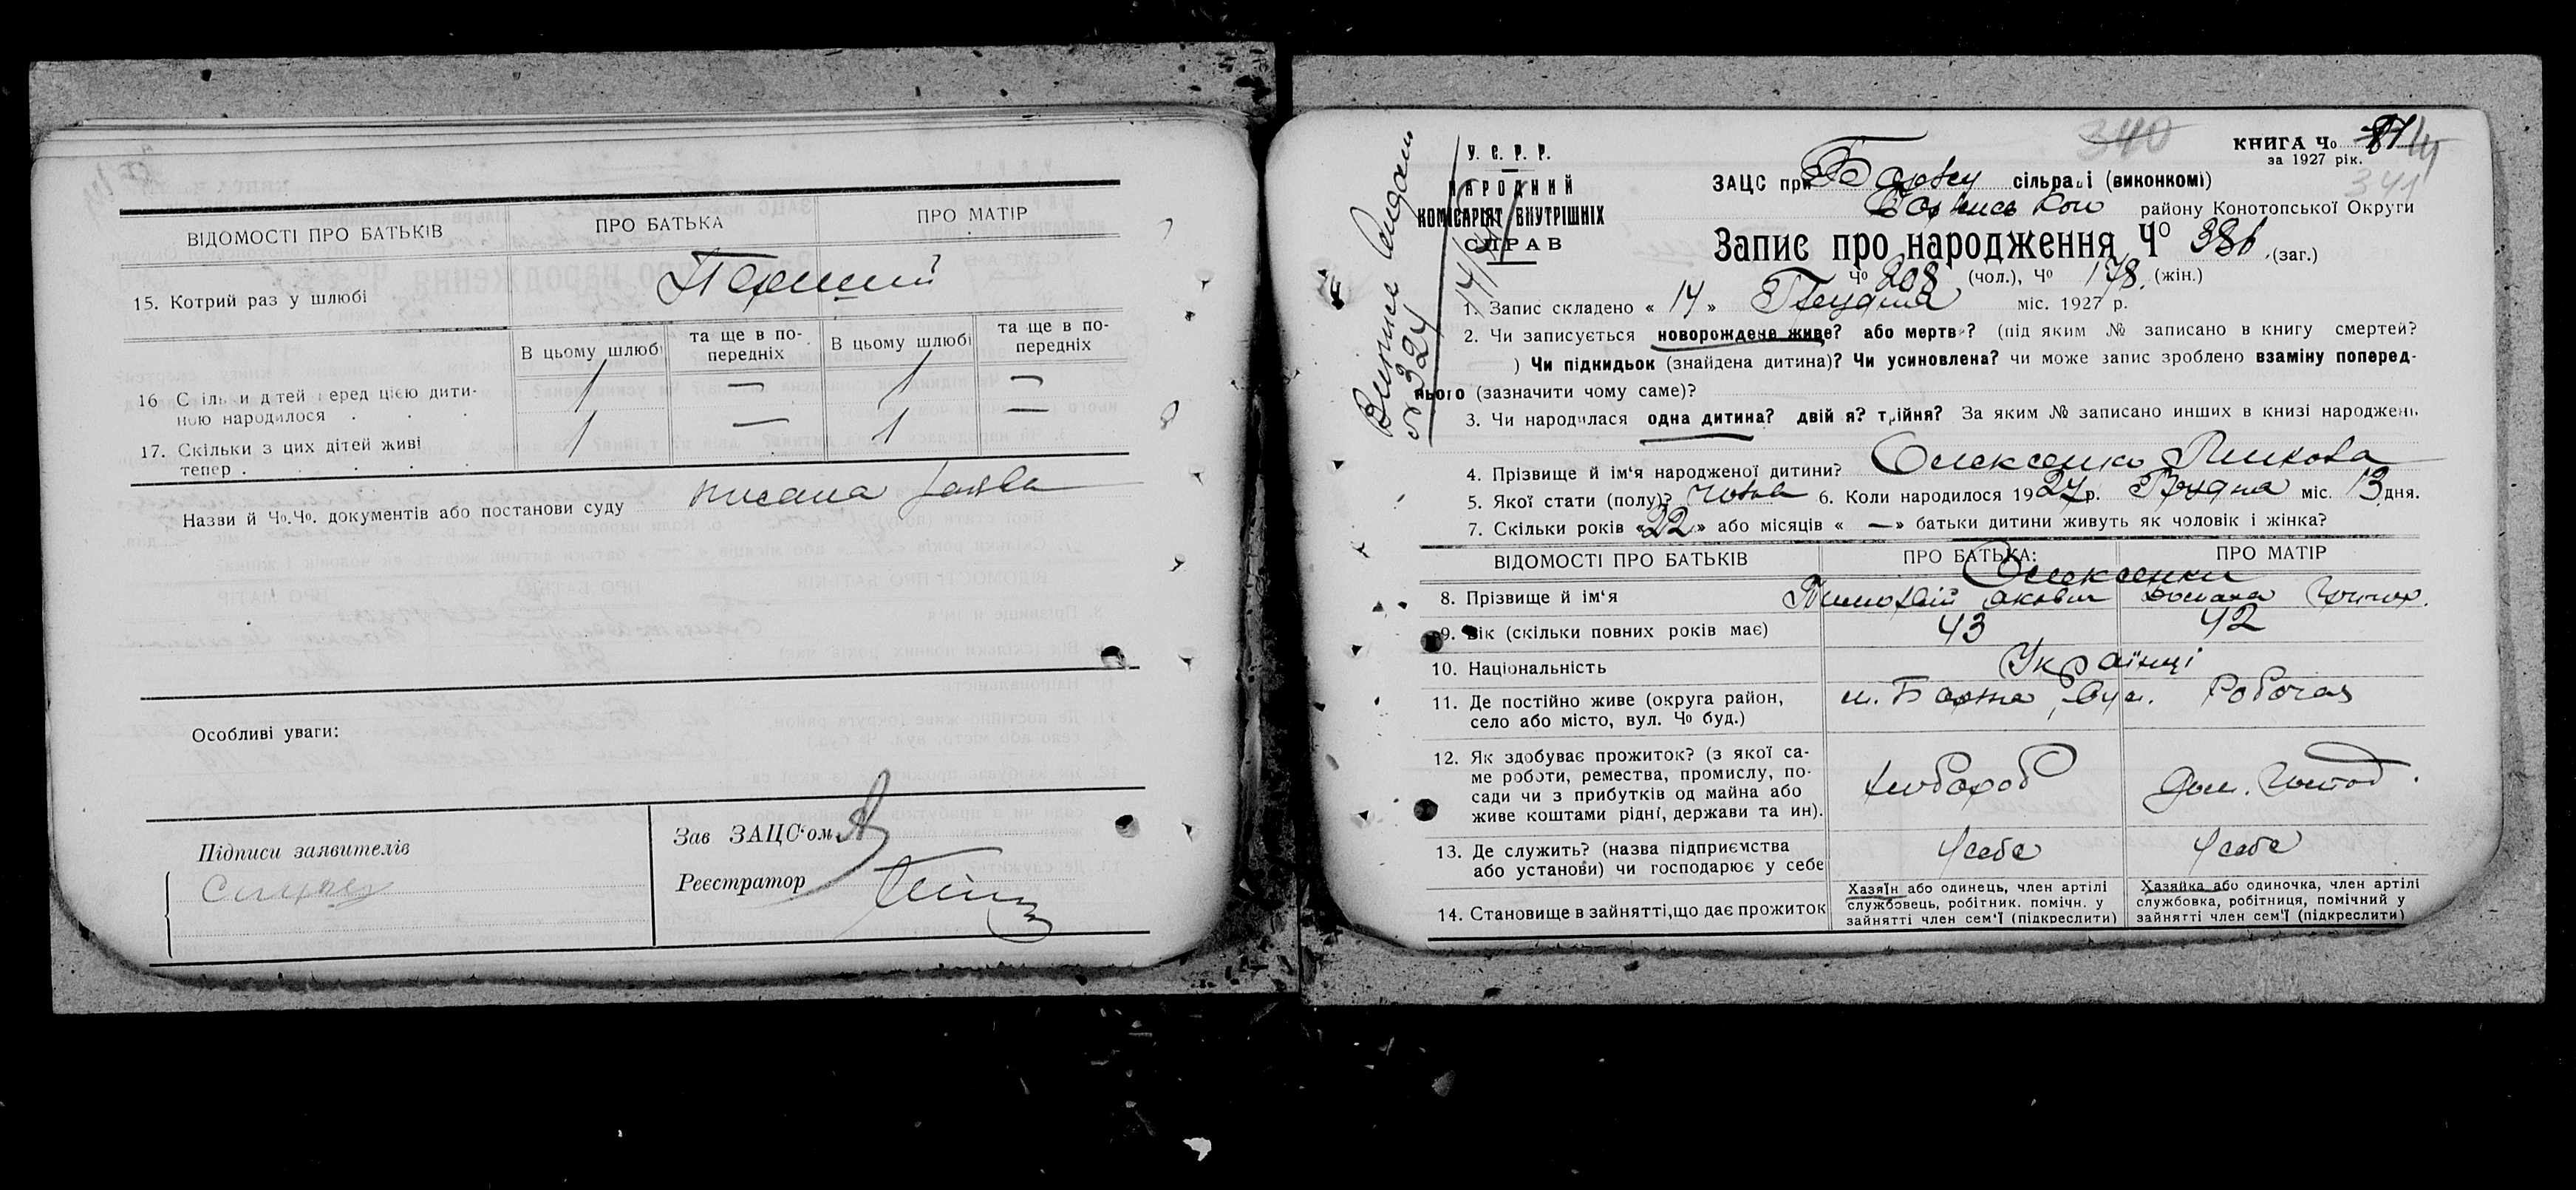 ВІДОМОСТІ ПРО БАТЬКІВ
ПРО БАТЬКА
ПРО МАТІР
15. Котрий раз у шлюбі
Перший
В цьому шлюбі
та ще в по-
передніх
В цьому шлюбі
та ще в по-
передніх
16 С іль и д тей еред цією дити-
ною народилося . . .
1 — 1 —
17. Скільки з цих дітей живі
тепер . . . . .
1 — 1 —
Назви й Чо.Чо. документів або постанови суду
Особливі уваги:
Підписи заявителів
Зав ЗАЦС'ом
Реєстратор
340
КНИГА Чо
за 1927 рік.
341
У. С. Р. Р.
НАРОДНИЙ
КОМІСАРІЯТ ВНУТРІШНІХ
СПРАВ
№ 324
ЗАЦС при сільраді (виконкомі)
району Конотопської Округи
Запис про народження Чо 386 (заг.)
Чо 208 (чол.), Чо 178 (жін.)
1. Запис складено « 14 » Грудня міс. 1927 р.
2. Чи записується новорождене живе? або мертве? (під яким № записано в книгу смертей?
) Чи підкидьок (знайдена дитина)? Чи усиновлена? чи може запис зроблено взаміну поперед-
нього (зазначити чому саме)?
3. Чи народилася одна дитина? двій я? трійня? За яким № записано инших в книзі народжень
4. Прізвище й ім'я народженої дитини? Олексенко
5. Якої стати (полу)? 6. Коли народилося 1927 р. Грудня міс. 13 дня.
7. Скільки років « 22 » або місяців « — » батьки дитини живуть як чоловік і жінка?
ВІДОМОСТІ ПРО БАТЬКІВ
ПРО БАТЬКА:
ПРО МАТІР
Олексенки
8. Прізвище й ім'я
Тимофій Якович Домаха
9. Вік (скільки повних років має)
43
42
10. Національність
Українці
11. Де постійно живе (округа район,
село або місто, вул. Чо буд.)
м. Бахмач, вул. Робочая
12. Як здобуває прожиток? (з якої са-
ме роботи, ремества, промислу, по-
сади чи з прибутків од майна або
живе коштами рідні, держави та ин).
хлібороб
Дом. Господ.
13. Де служить? (назва підприємства
або установи) чи господарює у себе
У себе
У себе
14. Становище в зайнятті, що дає прожиток
Хазяїн або одинець, член артілі
службовець, робітник. помічн. у
зайнятті член сем'ї (підкреслити)
Хазяйка або одиночка, член артілі
службовка, робітниця, помічний у
зайнятті член сем'ї (підкреслити)